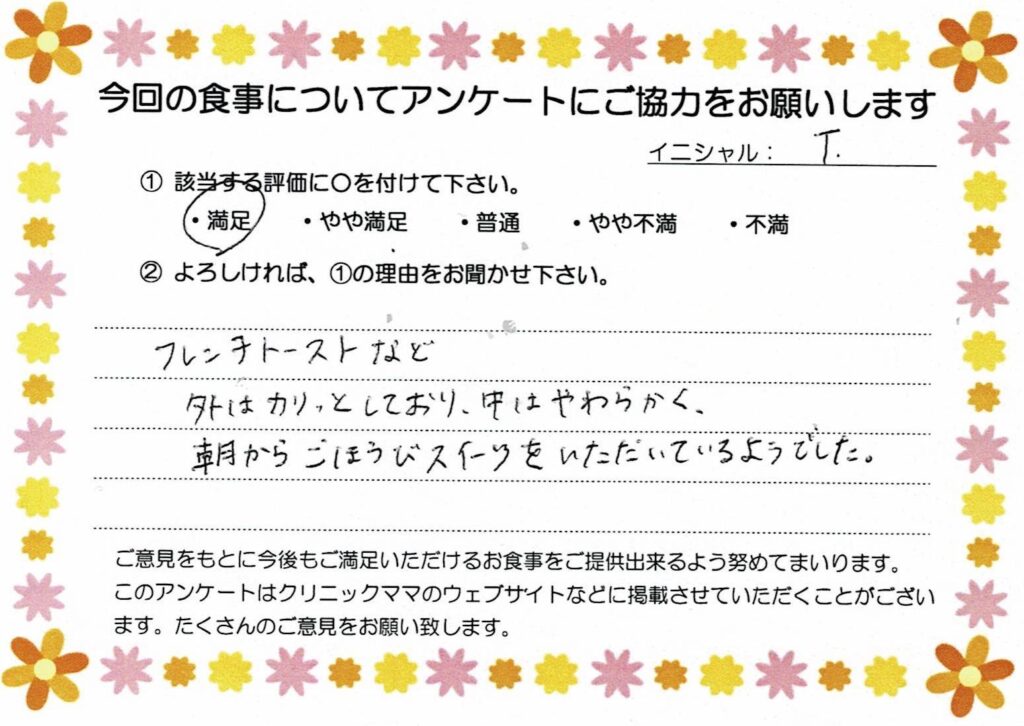 今回の食事についてアンケートにご協力をお願いします
イニシャル： T.
① 該当する評価に○を付けて下さい。
・満足 ・やや満足 ・普通 ・やや不満 ・不満
② よろしければ、①の理由をお聞かせ下さい。
フレンチトーストなど
外はカリっとしており、中はやわらかく、
朝からごほうびスイーツをいただいているようでした。
ご意見をもとに今後もご満足いただけるお食事をご提供出来るよう努めてまいります。
このアンケートはクリニックママのウェブサイトなどに掲載させていただくことがござい
ます。たくさんのご意見をお願い致します。